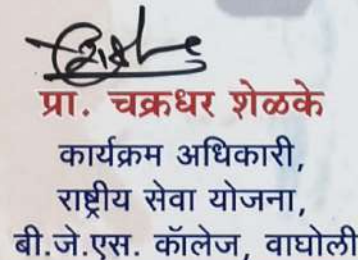 प्रा. चक्रधर शेळके
कार्यक्रम अधिकारी,
राष्ट्रीय सेवा योजना,
बी.जे.एस. कॉलेज, वाघोली